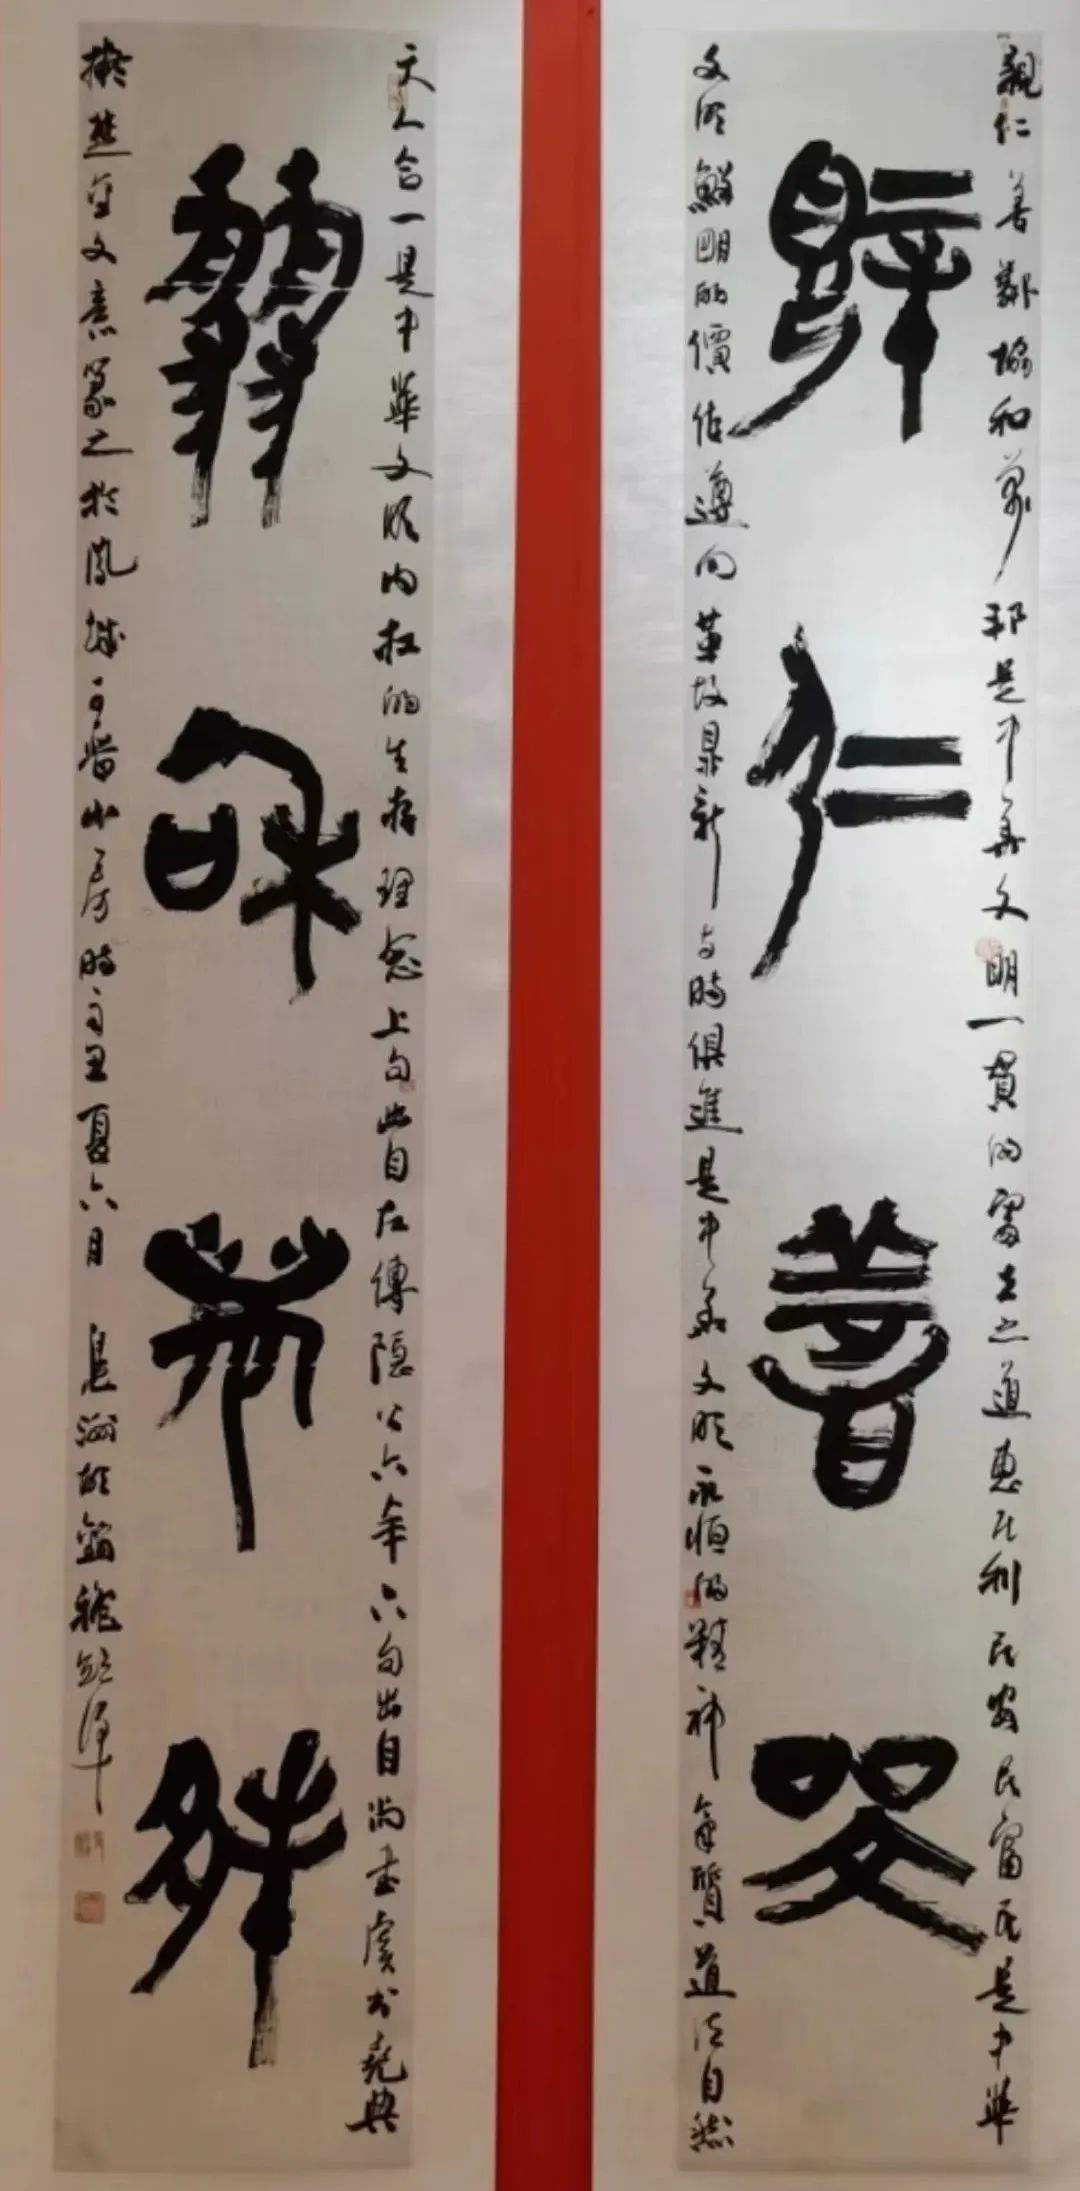 親仁善鄰協和萬邦是中華文明一貫的處世之道惠民利民安民富民是中華
親仁善鄰
文明鮮明的價值導向革故鼎新与時俱進是中華文明永恒的精神氣質道法自然
天人合一是中華文明内在的生存理念上句出自左傳隐公六年下句出自尚書虞書堯典
協和萬邦
擬楚金文意篆之於鳳城山房時辛丑夏六月